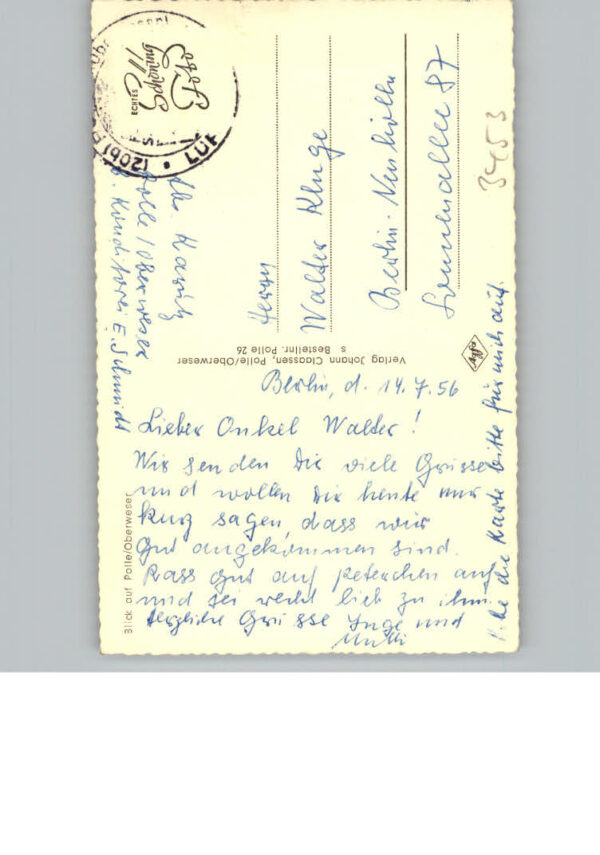 Berlin, d. 14.7.56
Lieber Onkel Walter!
Wir senden Dir viele Grüsse
und wollen Dir heute nur
kurz sagen, dass wir
gut angekommen sind.
Pass gut auf Peterchen auf
und sei recht lieb zu ihm.
Herzliche Grüsse Inge und
Mutti
die Karte bitte für mich auf.
Herrn
Walter Kluge
Berlin-Neukölln
Sonnenallee 87
Abs.
Polle/Oberweser
b. Konditorei E. Schmidt
Verlag Johann Claassen, Polle/Oberweser
s Bestellnr. Polle 26
Blick auf Polle/Oberweser
Agfa
ECHTES
Foto
(20b)
3453